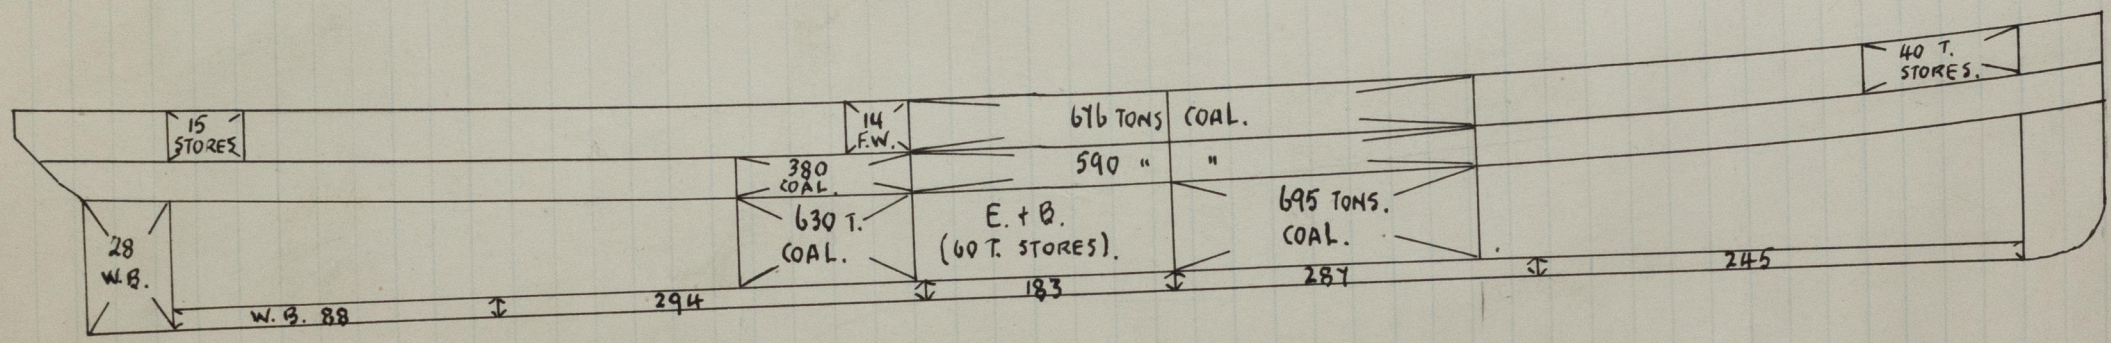 40 T.
STORES.
15
STORES
14
F.W.
676 TONS COAL.
380
COAL.
590 " "
28
W.B.
630 T.
COAL.
E. + B.
(60 T. STORES).
695 TONS.
COAL.
W.B. 88
294
183
287
245